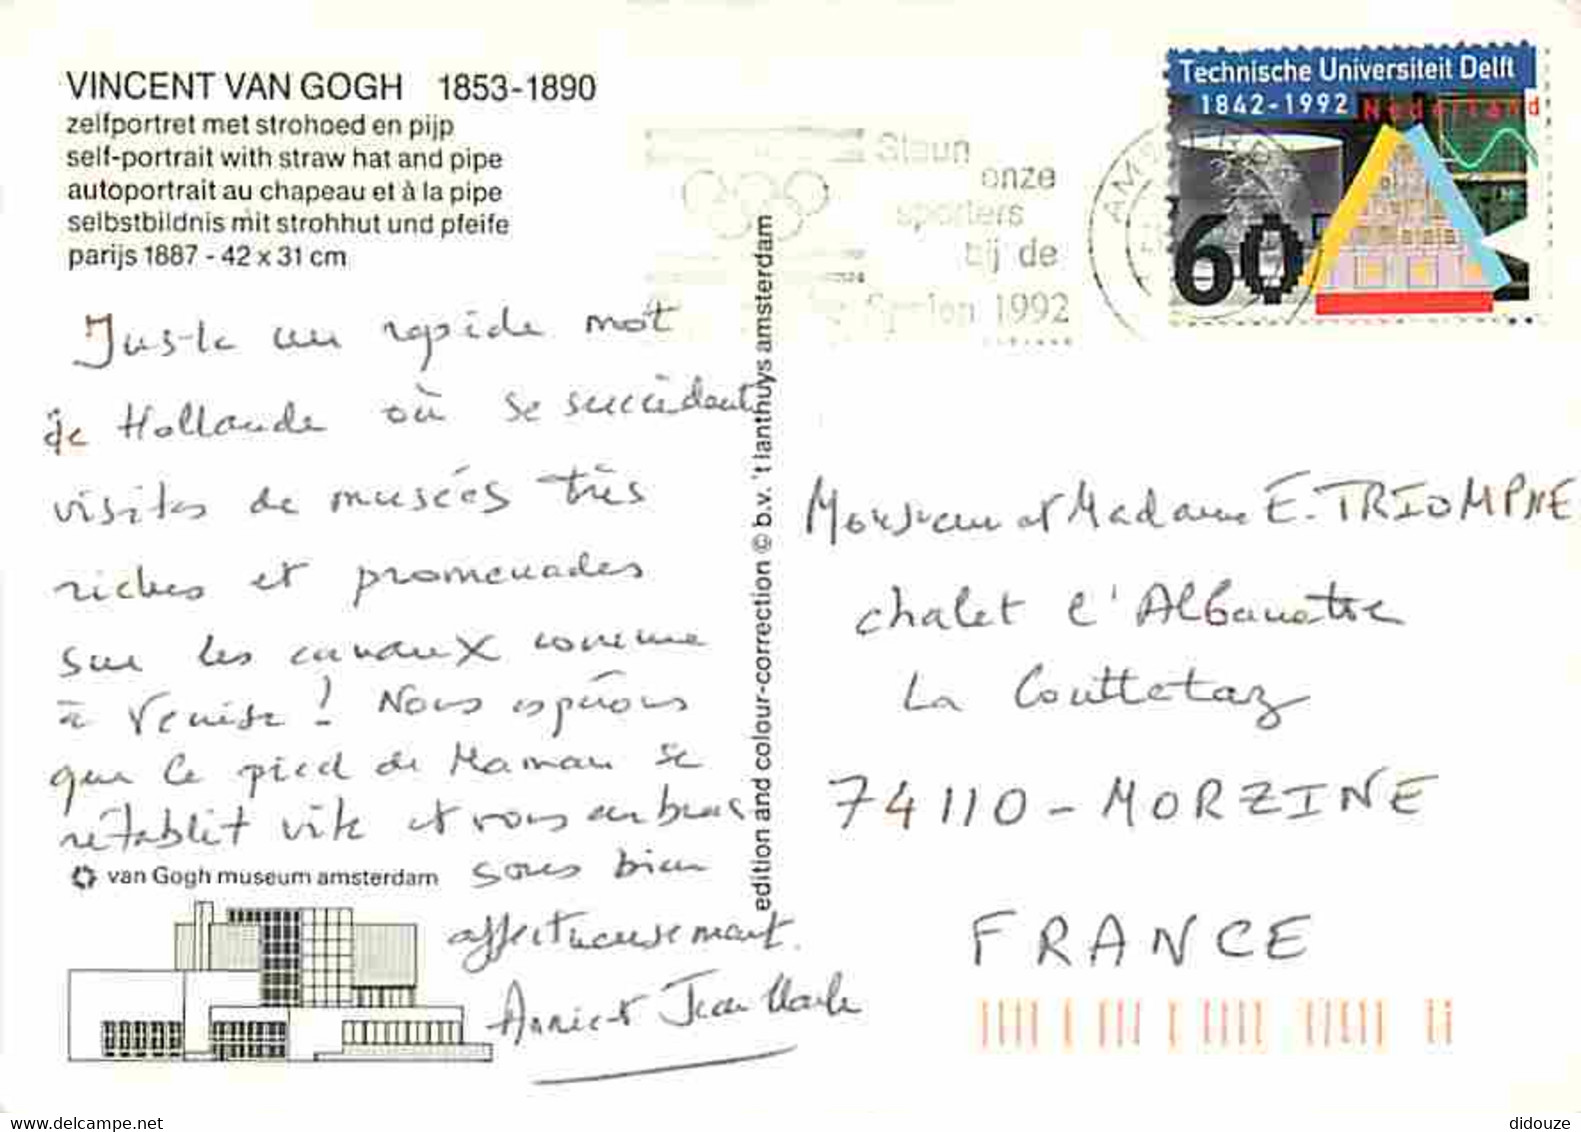 VINCENT VAN GOGH 1853-1890
zelfportret met strohoed en pijp
self-portrait with straw hat and pipe
autoportrait au chapeau et à la pipe
selbstbildnis mit strohhut und pfeife
parijs 1887 - 42 x 31 cm
Juste un rapide mot
de Hollande où se succèdent
visites de musées très
riches et promenades
sur les canaux comme
à Venise ! Nous espérons
que le pied de Maman se
rétablit vite et vous embras
sons bien
affectueusement.
Annie et Jean Charles
van Gogh museum amsterdam
edition and colour-correction © b.v. 't lanthuys amsterdam
Steun
onze
sporters
bij de
Spelen 1992
AMSTERD
Technische Universiteit Delft
1842-1992 Nederland
60
Monsieur et Madame E. TRIOMPHE
chalet l'Albanaise
La Couttettaz
74110 - MORZINE
FRANCE
didouze